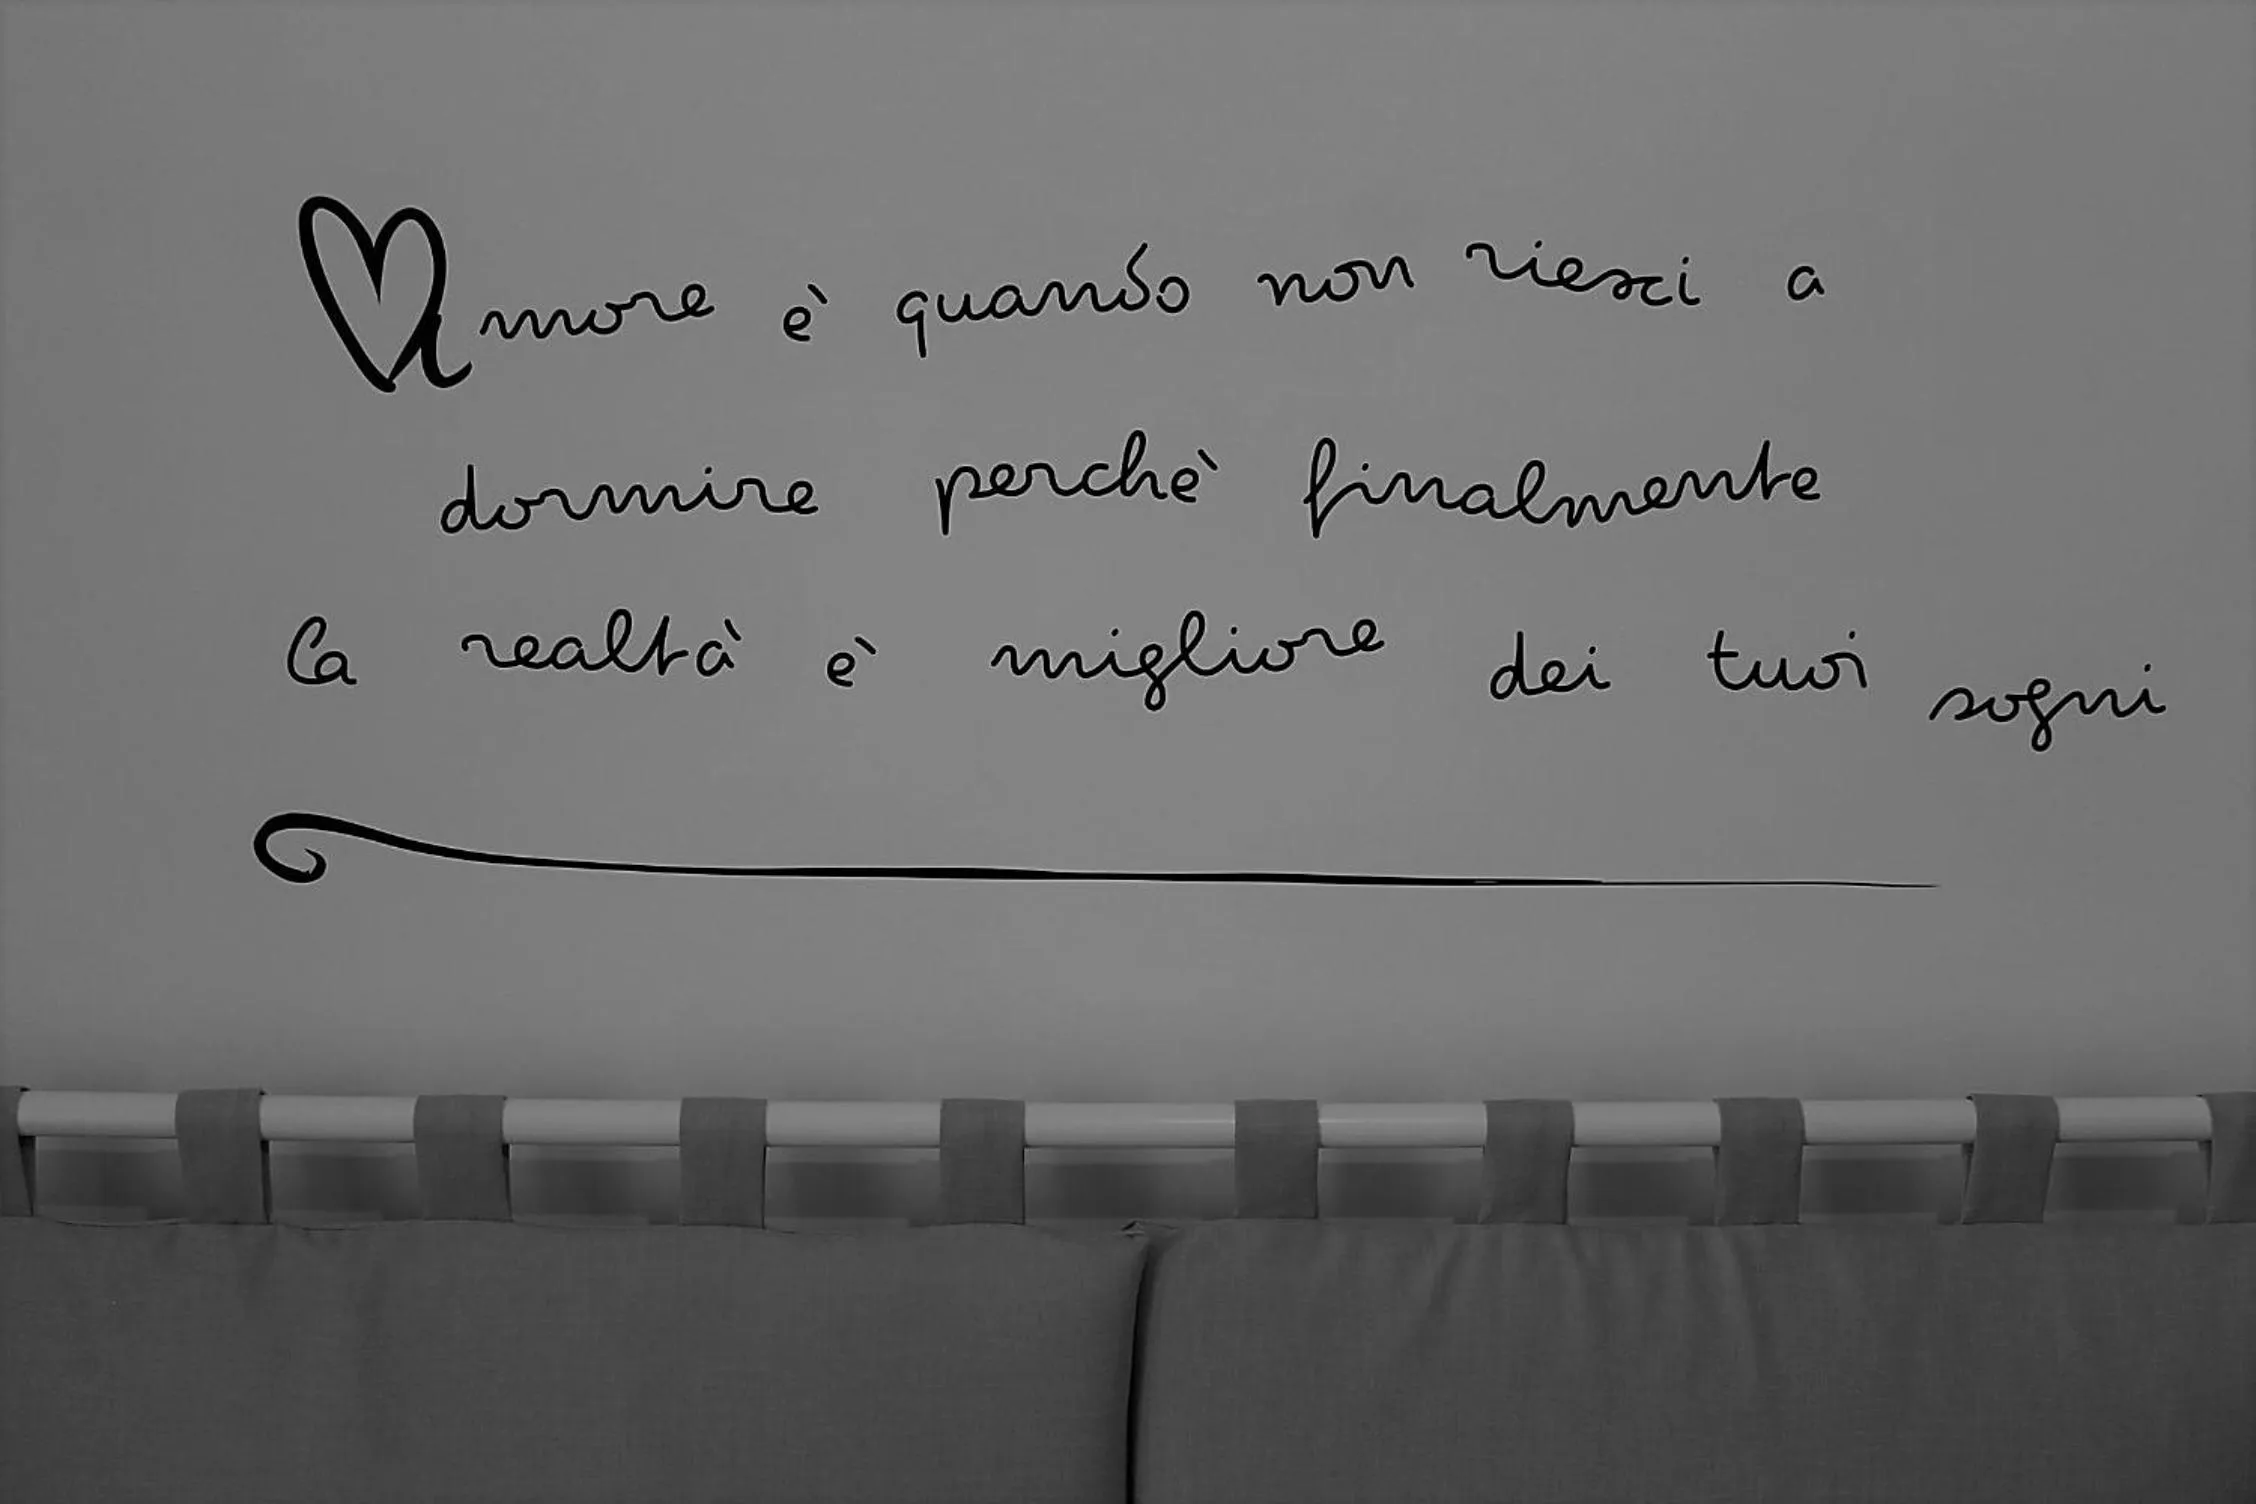 Amore è quando non riesci a
dormire perchè finalmente
la realtà è migliore dei tuoi sogni